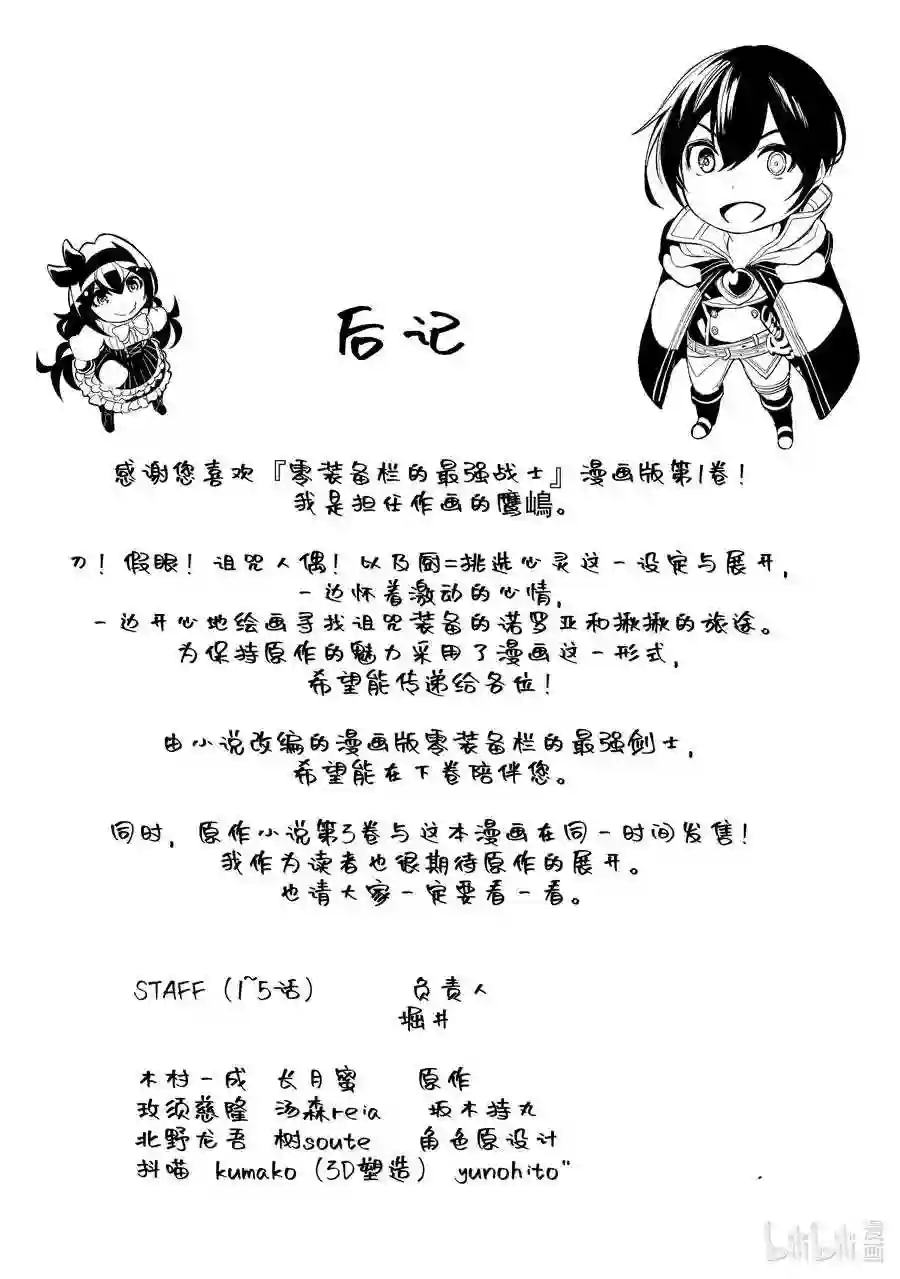 后记
感谢您喜欢『零装备栏的最强战士』漫画版第1卷！
我是担任作画的鹰嶋。
刀！假眼！诅咒人偶！以及厨=挑选心灵这一设定与展开，
一边怀着激动的心情，
一边开心地绘画寻找诅咒装备的诺罗亚和揪揪的旅途。
为保持原作的魅力采用了漫画这一形式，
希望能传递给各位！
由小说改编的漫画版零装备栏的最强剑士，
希望能在下卷陪伴您。
同时，原作小说第3卷与这本漫画在同一时间发售！
我作为读者也很期待原作的展开。
也请大家一定要看一看。
STAFF（1~5话） 负责人
堀井
木村一成 长月蜜 原作
玫须慈隆 汤森reia 坂木持丸
北野龙吾 树soute 角色原设计
抖喵 kumako（3D塑造） yunohito"
bilibili漫画